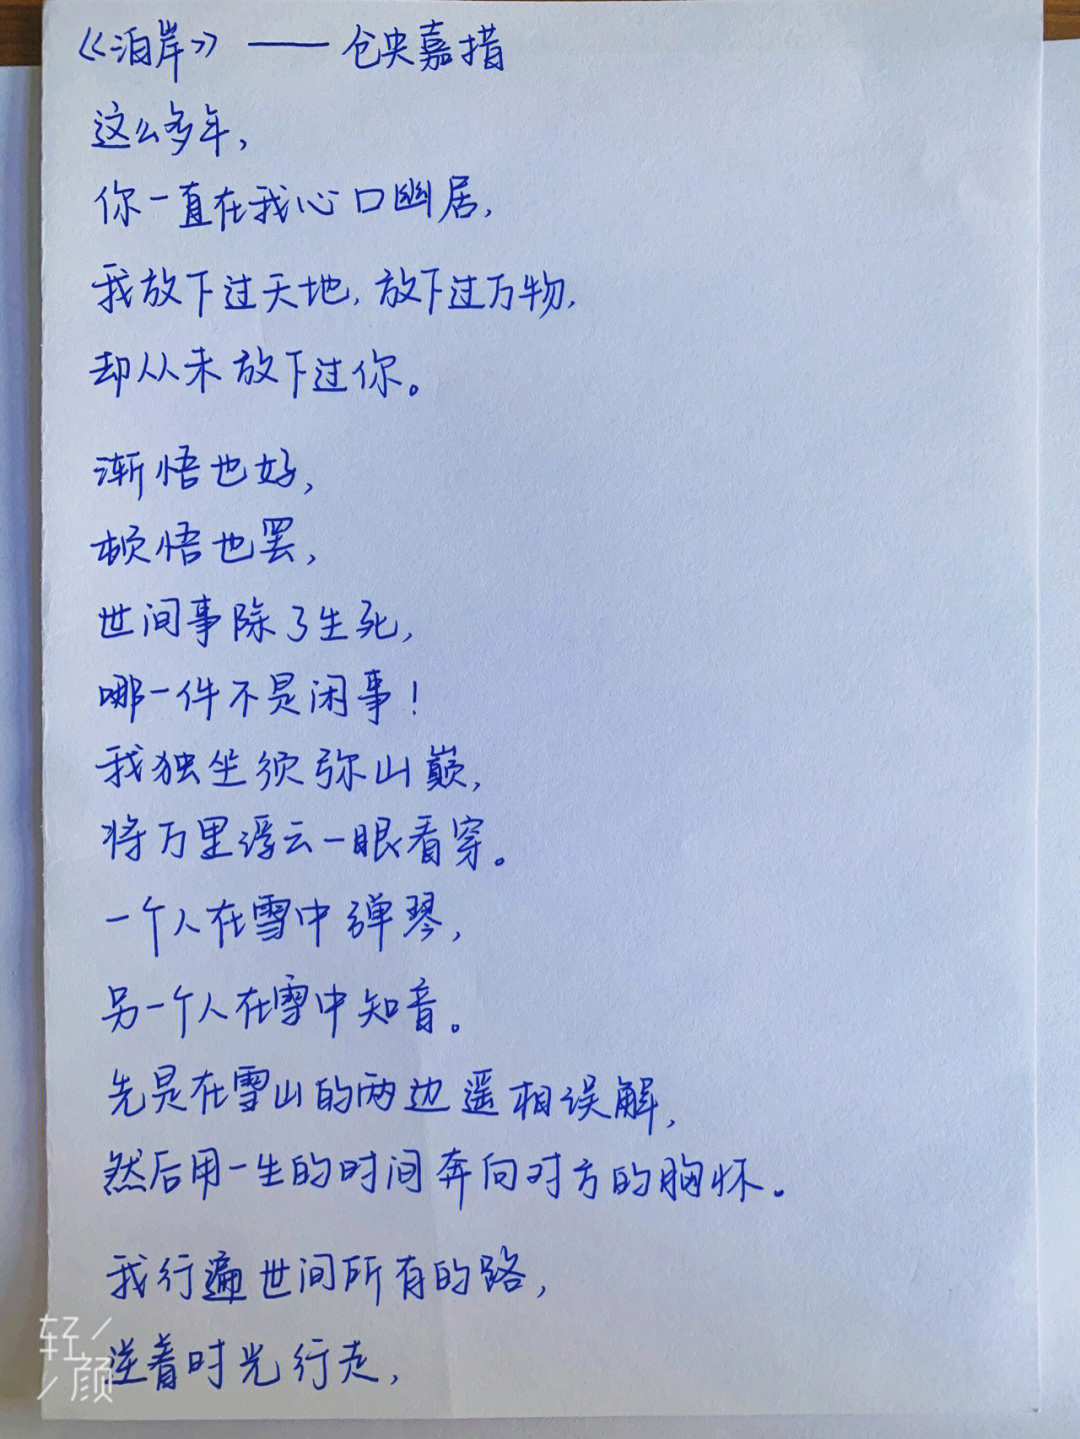 《泊岸》——仓央嘉措
这么多年,
你一直在我心口幽居,
我放下过天地,放下过万物,
却从未放下过你。
渐悟也好,
顿悟也罢,
世间事除了生死,
哪一件不是闲事!
我独坐须弥山巅,
将万里浮云一眼看穿。
一个人在雪中弹琴,
另一个人在雪中知音。
先是在雪山的两边遥相误解,
然后用一生的时间奔向对方的胸怀。
我行遍世间所有的路,
逆着时光行走,
轻颜